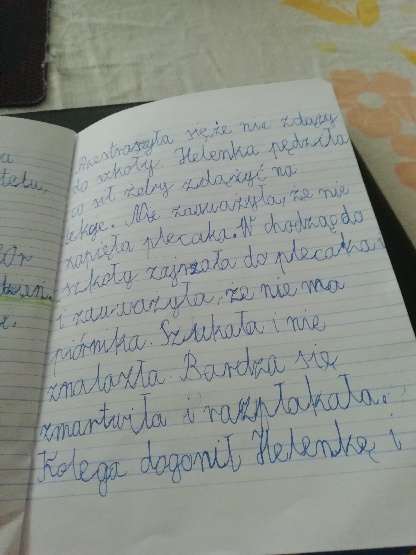 u
telu,
or
dzień.
Przestraszyła się, że nie zdąży
do szkoły. Helenka pędziła
co sił żeby zdążyć na
lekcje. Nie zauważyła, że nie
zapięła plecaka. W chodząc do
szkoły zajrzała do plecaka
i zauważyła, że nie ma
piórnika. Szukała i nie
znalazła. Bardzo się
zmartwiła i rozpłakała.
Kolega dogonił Helenkę i